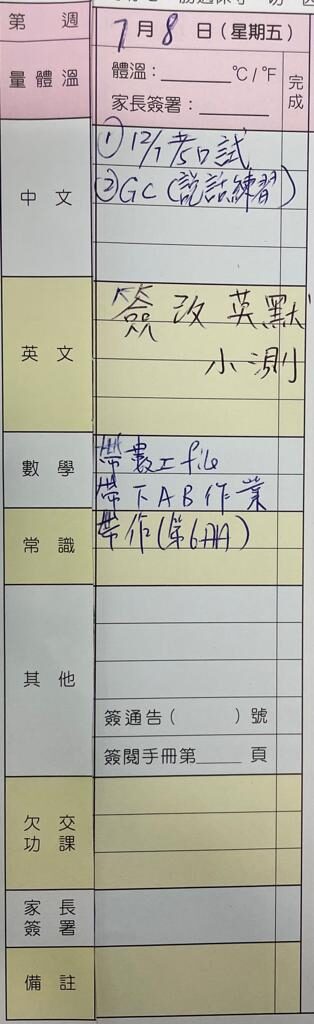 第 週
7月8日(星期五)
量體溫
體溫:______°C/°F
家長簽署:______
完成
中文
①12/1考口試
②GC(說話練習)
英文
簽改英默
小測
數學
帶數工file
帶下AB作業
常識
帶作(第6
其他
簽通告( )號
簽閱手冊第____頁
欠交功課
家長簽署
備註